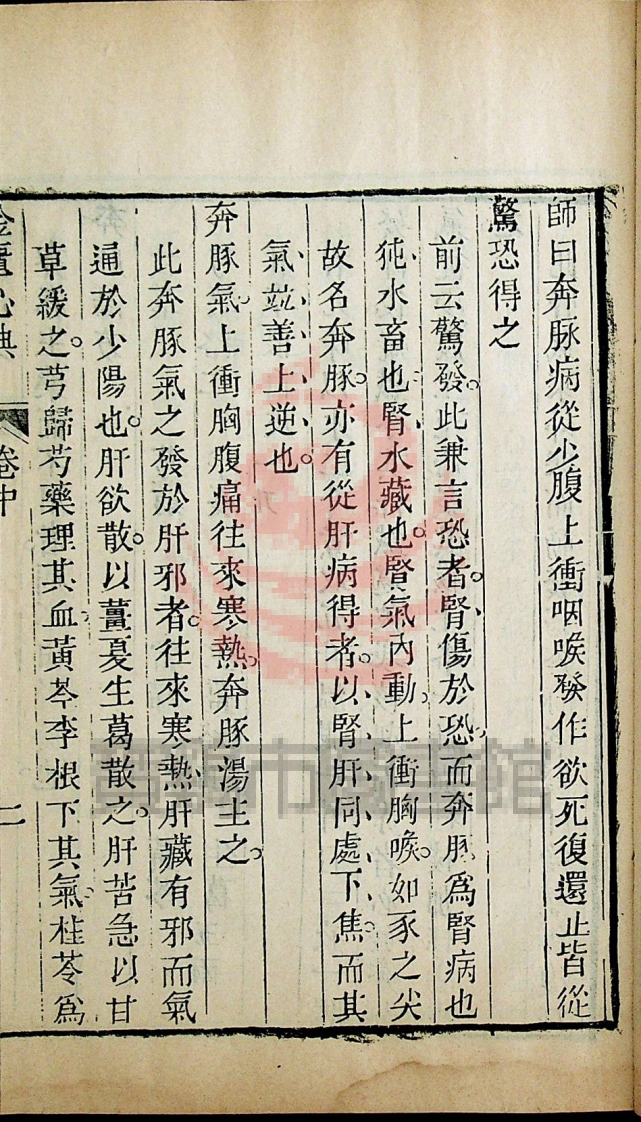 師曰奔豚病從少腹上衝咽喉發作欲死復還止皆從
驚恐得之
前云驚發。此兼言恐者。腎傷於恐。而奔豚為腎病也
㹠水畜也。腎水藏也。腎氣內動。上衝胸喉。如豕之尖
故名奔豚。亦有從肝病得者。以腎肝同處下焦。而其
氣竝善上逆也。
奔豚氣。上衝胸腹痛往來寒熱。奔豚湯主之。
此奔豚氣之發於肝邪者。往來寒熱。肝藏有邪而氣
通於少陽也。肝欲散。以薑夏生葛散之。肝苦急以甘
草緩之。芎歸芍藥理其血黃芩李根下其氣。桂苓為
金匱心典
卷中
二
市圖書館